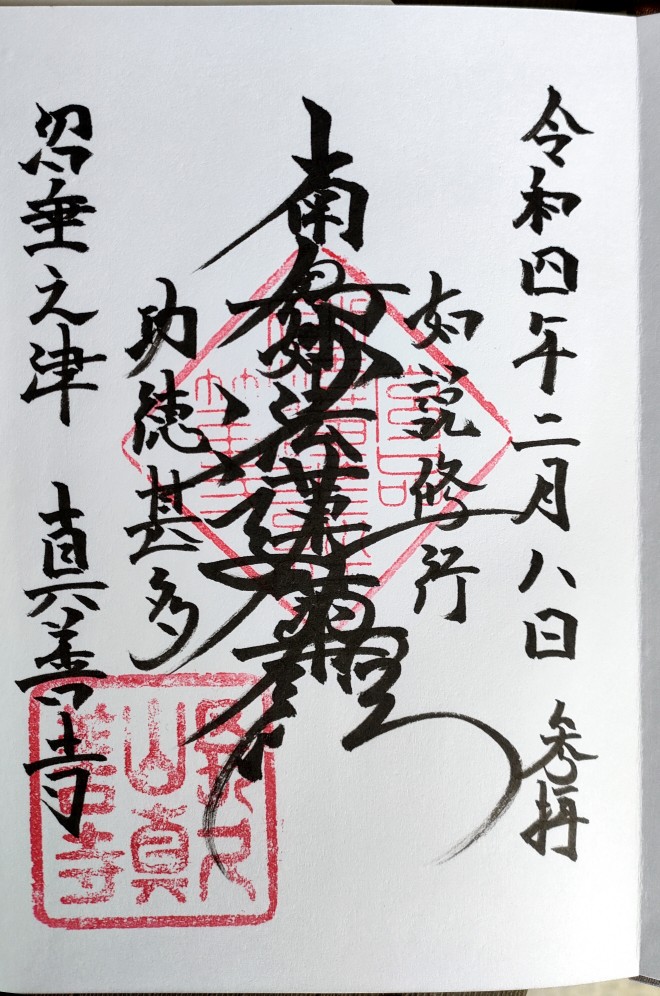 令和四年二月八日 参拝
如説修行
南無妙法蓮華経
功徳甚多
沼垂之津 真善寺
山真
善寺